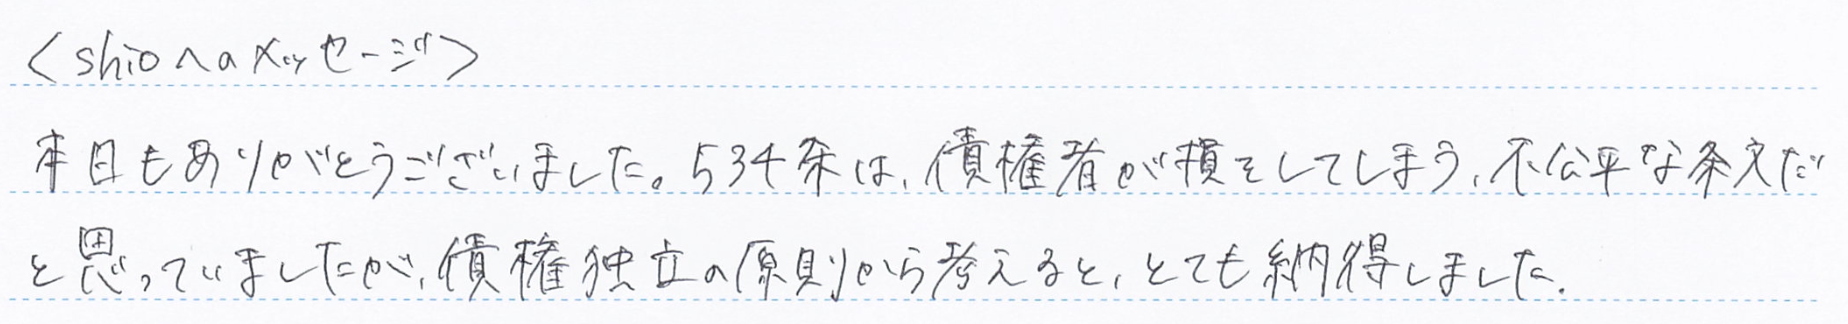 <shioへのメッセージ>
本日もありがとうございました。534条は、債権者が損をしてしまう、不公平な条文だ
と思っていましたが、債権独立の原則から考えると、とても納得しました。